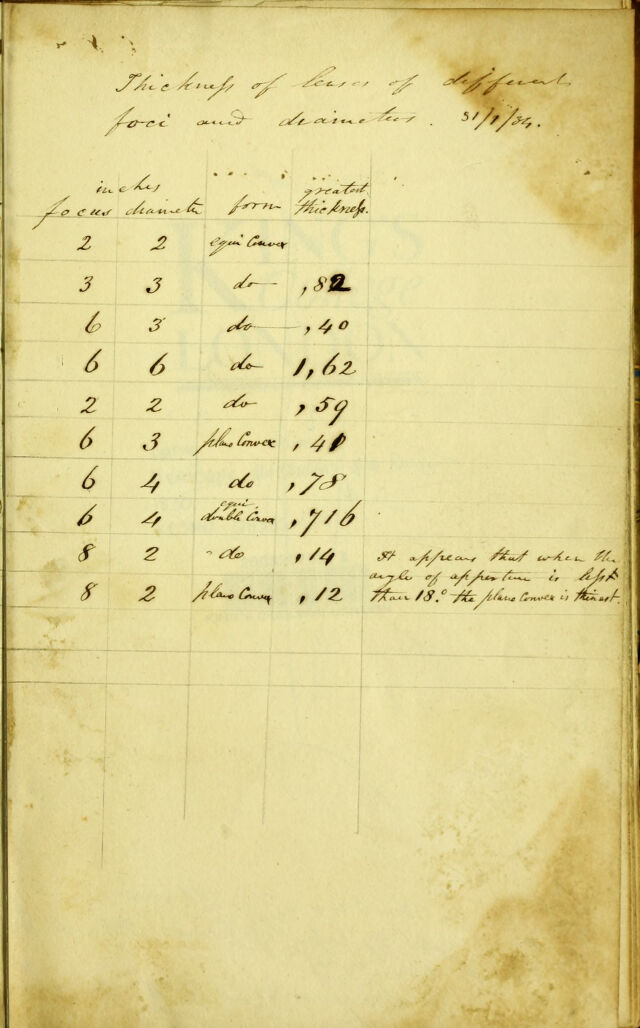 Thickness of lenses of different
foci and diameters. 31/1/34.
inches
focus diameter form greatest thickness.
2 2 equi Convex
3 3 do ,82
6 3 do ,40
6 6 do 1,62
2 2 do ,59
6 3 plano Convex ,41
6 4 do ,78
6 4 equi double Convex ,716
8 2 do ,14 It appears that when the
angle of apperture is less
8 2 plano Convex ,12 than 18° the plano Convex is thinest.